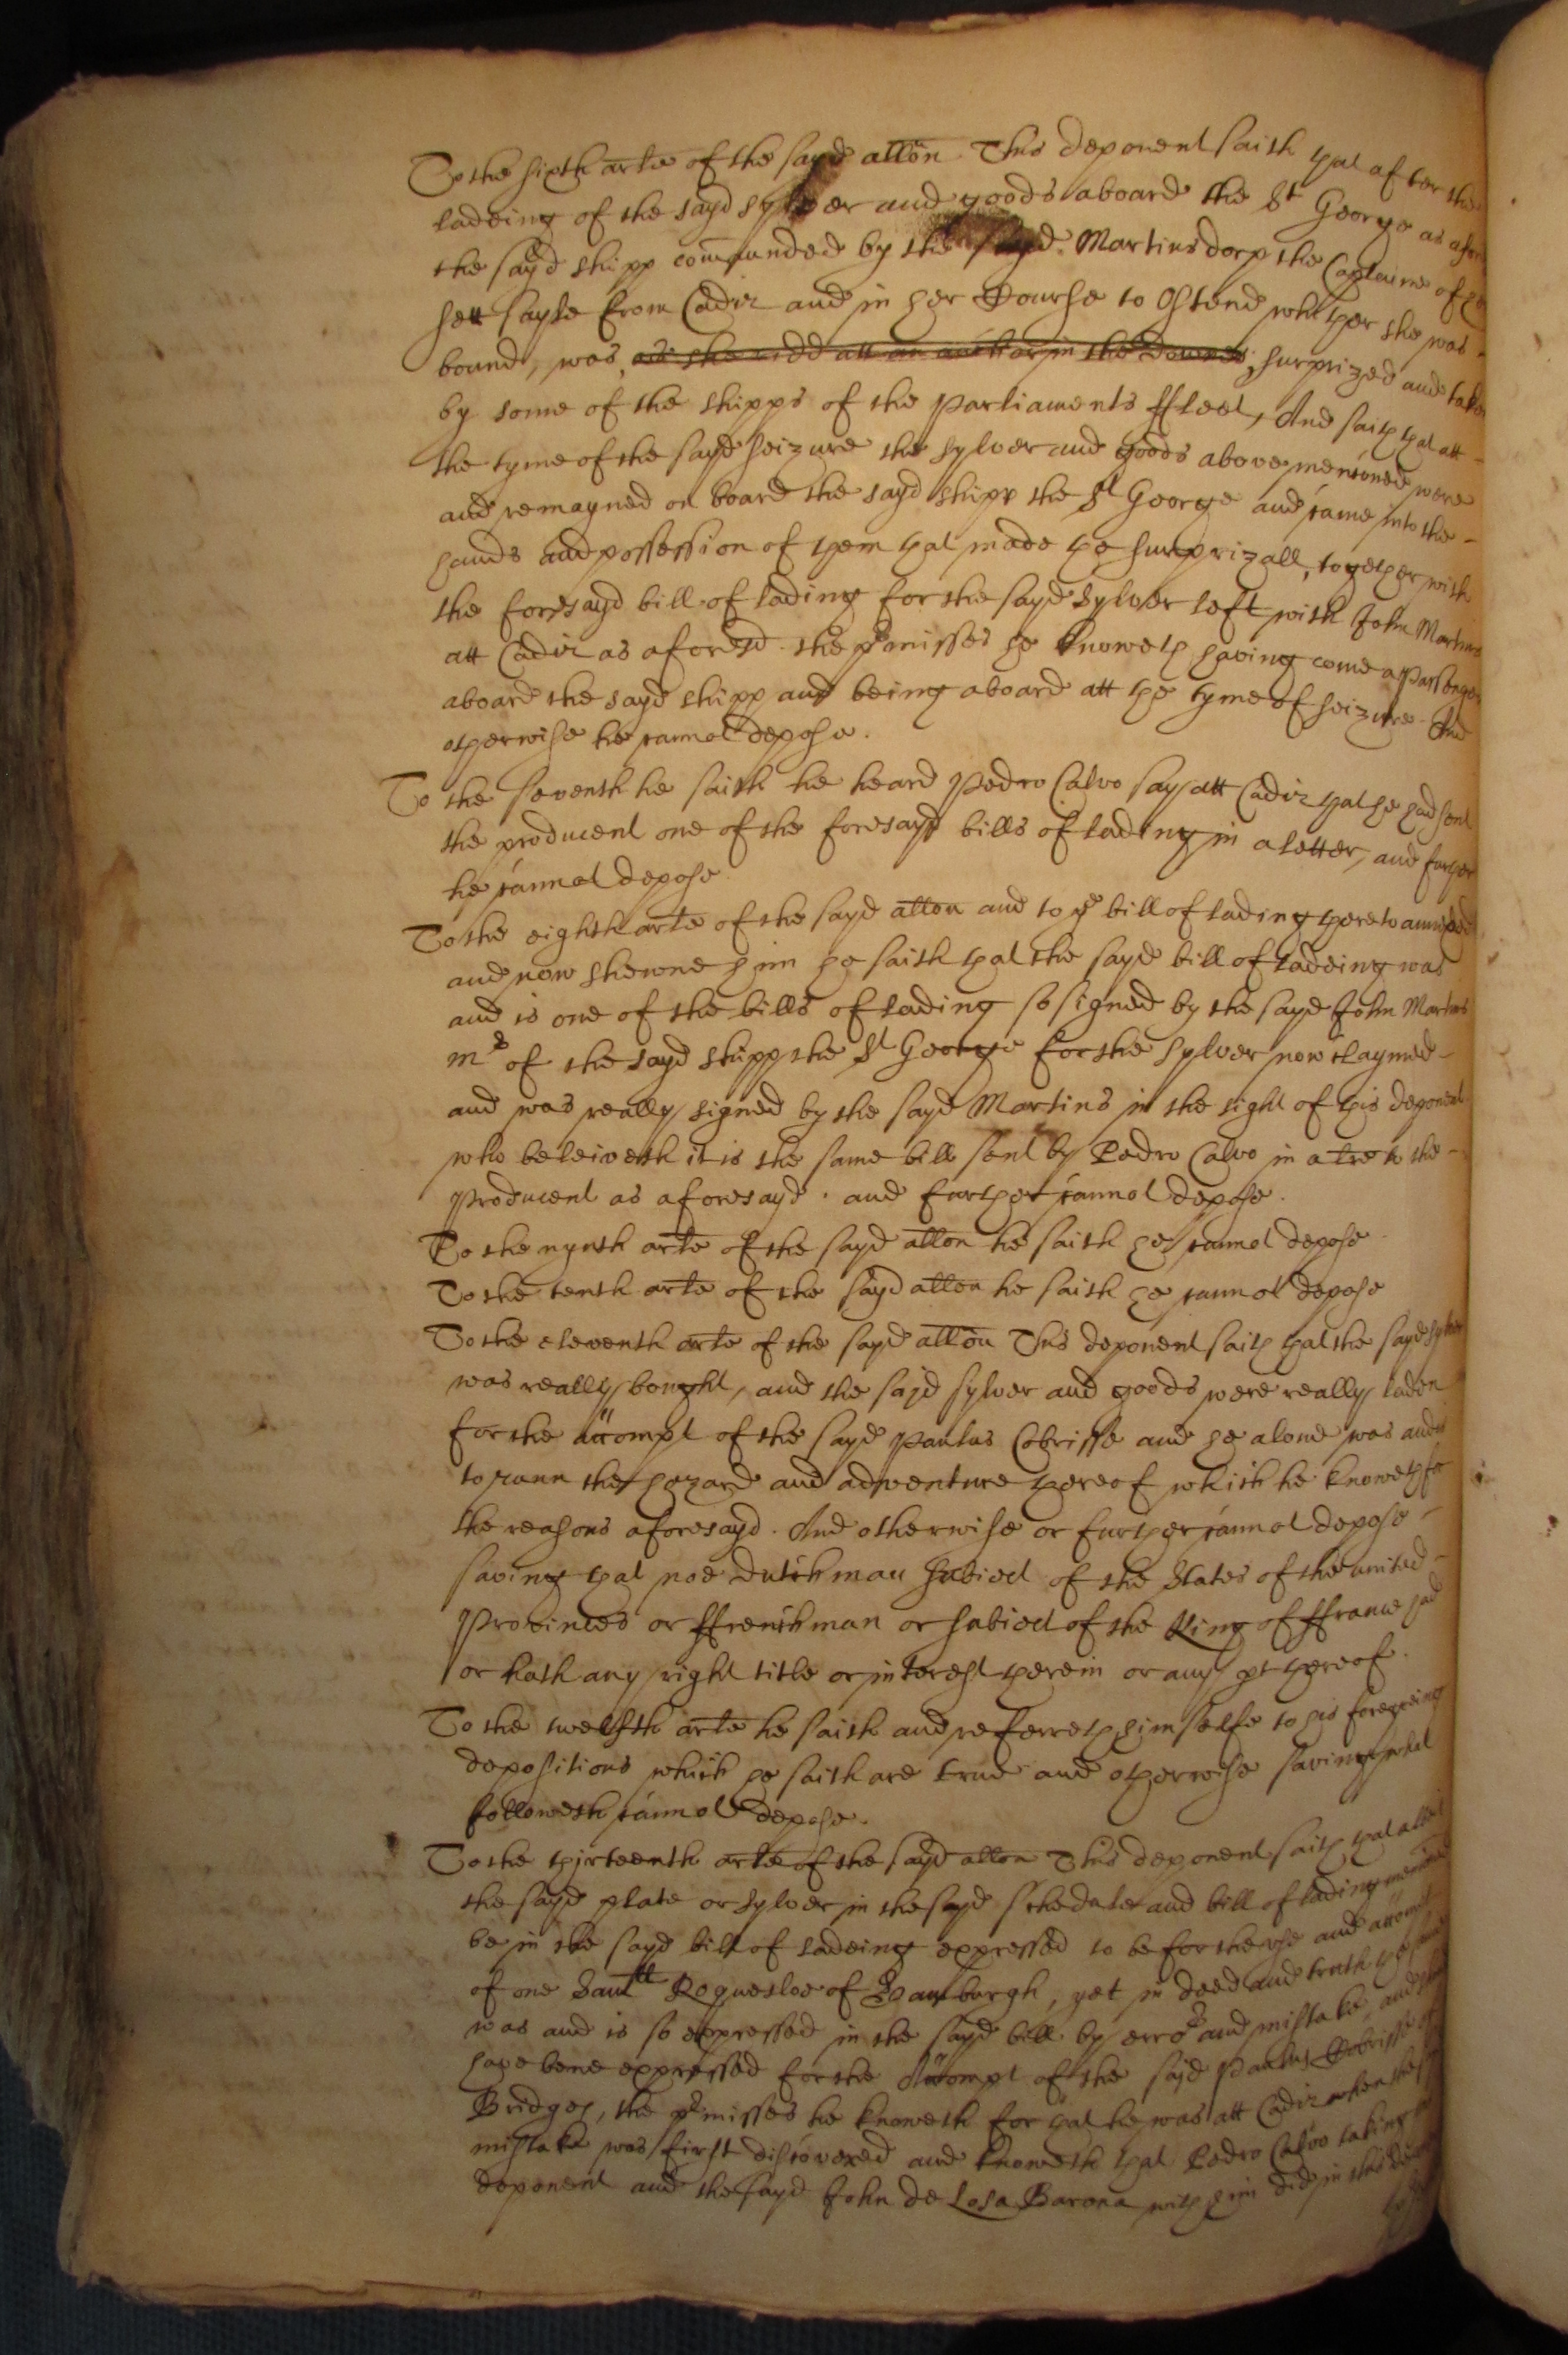 To the sixth arte of the sayd allon This deponent saith that after the
ladeing of the sayd sylver and goods aboard the St George as afore
the sayd shipp commanded by the sayd Martinsdorp the Captaine of her
sett sayle from Cadiz and in her Course to Ostend whither she was
bound, was, as she ridd att an anchor in the Downes, surprized and taken
by some of the shipps of the Parliaments ffleet, And saith that att
the tyme of the sayd seizure the sylver and goods above mencioned were
and remayned on board the sayd shipp the St George and came into the
hands and possession of them that made the surprizall, together with
the foresayd bill of lading for the sayd sylver left with John Martins
att Cadiz as aforesd. the premisses he knoweth having come a passenger
aboard the sayd shipp and being aboard att the tyme of seizure. And
otherwise he cannot depose.
To the seventh he saith he heard Pedro Calvo say att Cadiz that he had sent
the producent one of the foresayd bills of lading in a letter, and further
he cannot depose.
To the eighth arte of the sayd allon and to ye bill of lading thereto annexed
and now shewne him he saith that the sayd bill of ladeing was
and is one of the bills of lading so signed by the sayd John Martins
mr of the sayd shipp the St George for the sylver now claymed
and was really signed by the sayd Martins in the sight of this deponent
who beleiveth it is the same bill sent by Pedro Calvo in a lre to the
producent as aforesayd. and further cannot depose.
To the nynth arte of the sayd allon he saith he cannot depose
To the tenth arte of the sayd allon he saith he cannot depose
To the eleventh arte of the sayd allon This deponent saith that the sayd sylver
was really bought, and the sayd sylver and goods were really laden
for the accompt of the sayd Paulus Cobrisse and he alone was and is
to runn the hazard and adventure thereof which he knoweth for
the reasons aforesayd. And otherwise or further cannot depose
saving that noe Dutchman subiect of the States of the united
Provinces or ffrenchman or subiect of the King of ffrance had
or hath any right title or interest therein or any pt thereof.
To the twelfth arte he saith and referreth himselfe to his foregoeing
depositions which he saith are true and otherwise saving what
followeth cannot depose.
To the thirteenth arte of the sayd allon This deponent saith that albeit
the sayd plate or sylver in the sayd schedule and bill of lading mencioned
be in the sayd bill of ladeing expressed to be for the use and accompt
of one Samll Roquesloe of Hamburgh, yet in deed and truth the same
was and is so expressed in the sayd bill by error and mistake, and should
have bene expressed for the Accompt of the sayd Paulus Cobrisse of
Bridges, the premisses he knoweth for that he was att Cadiz when the sd
mistake was first discovered and knoweth that Pedro Calvo taking this
deponent and the sayd John de Losa Barona with him did in this